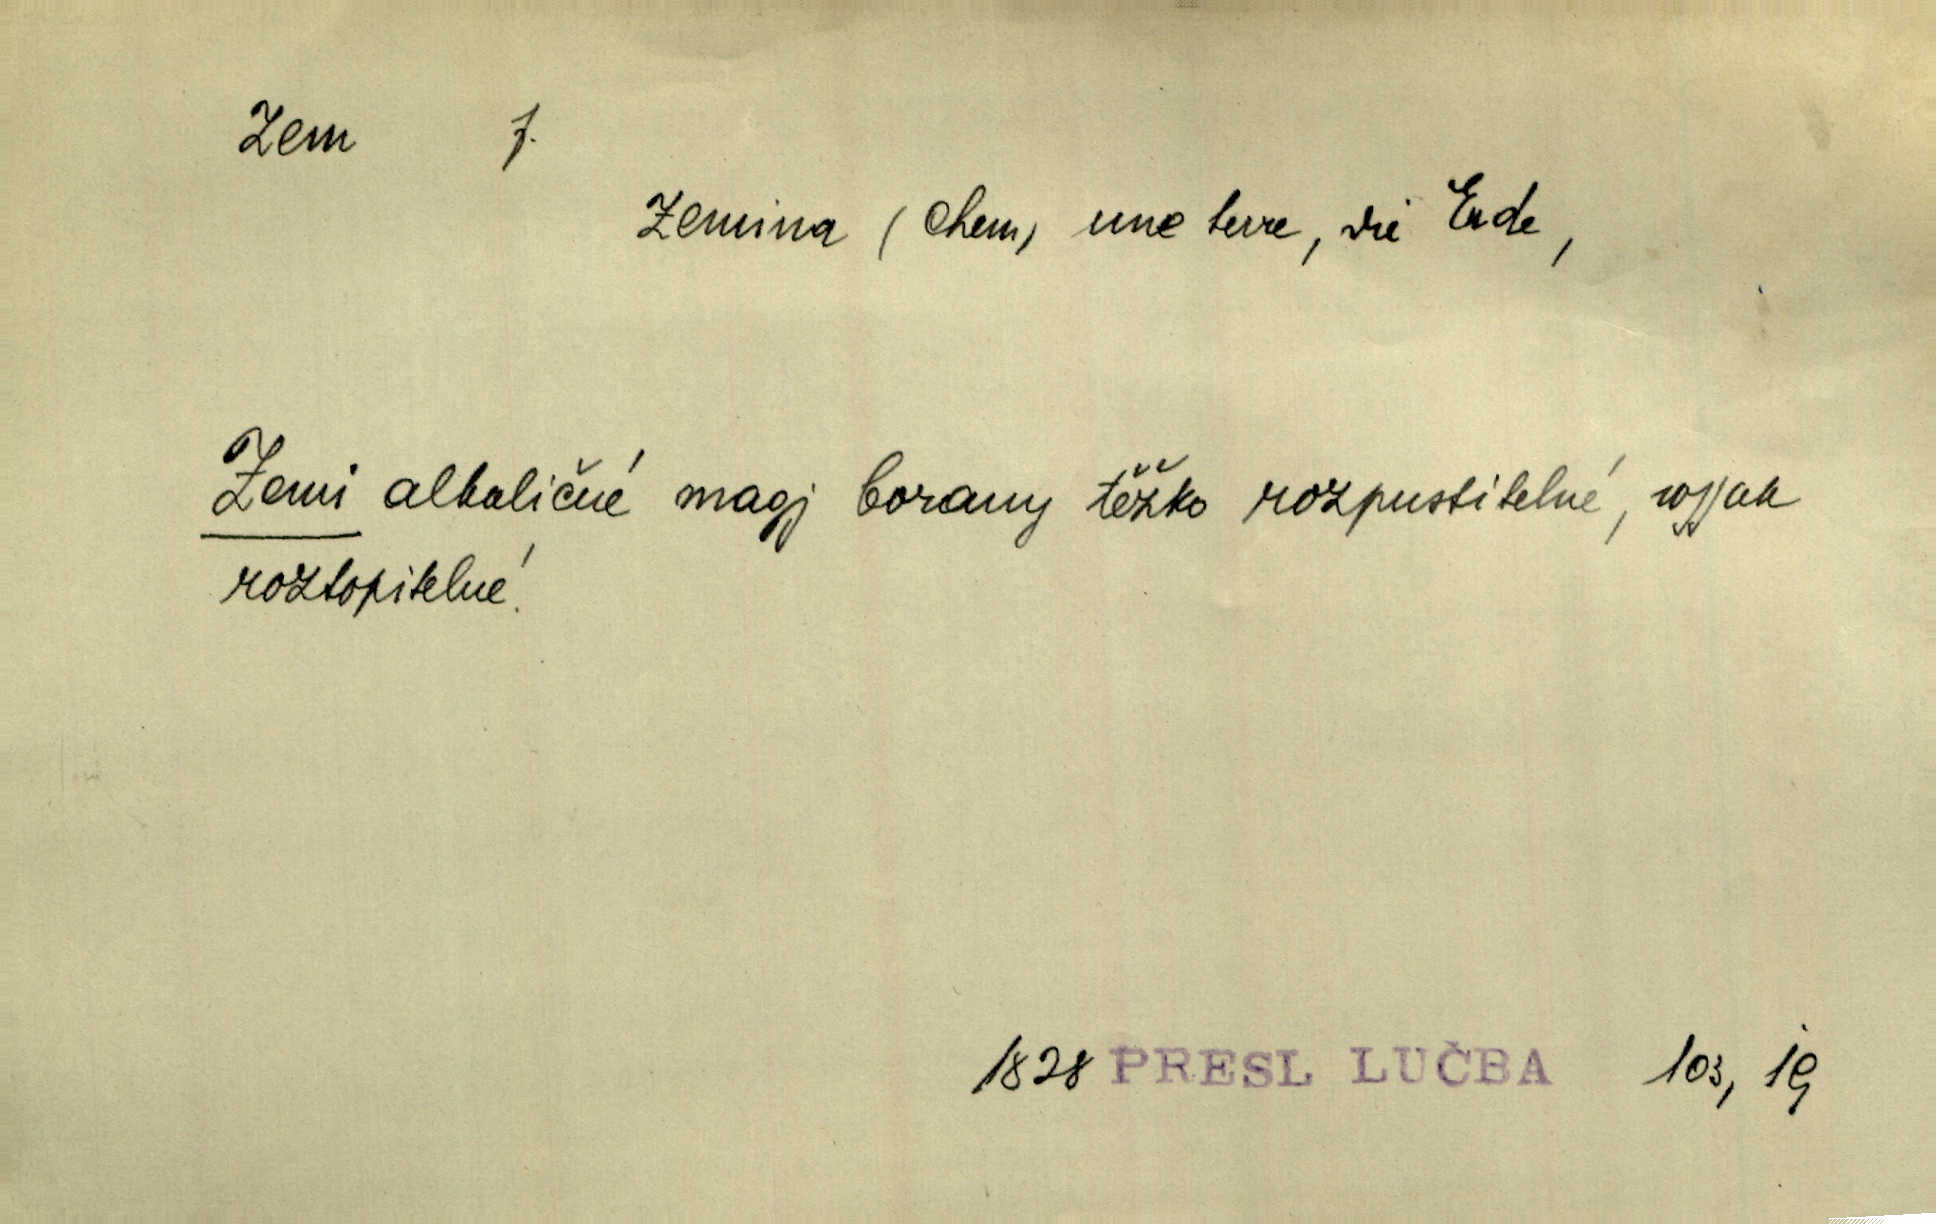 Zem f.
Zemina (Chem) une terre, die Erde,
Zemi alkaličné magj borany těžko rozpustitelné, wssak
roztopitelné.
1828 PRESL LUČBA 103, 19